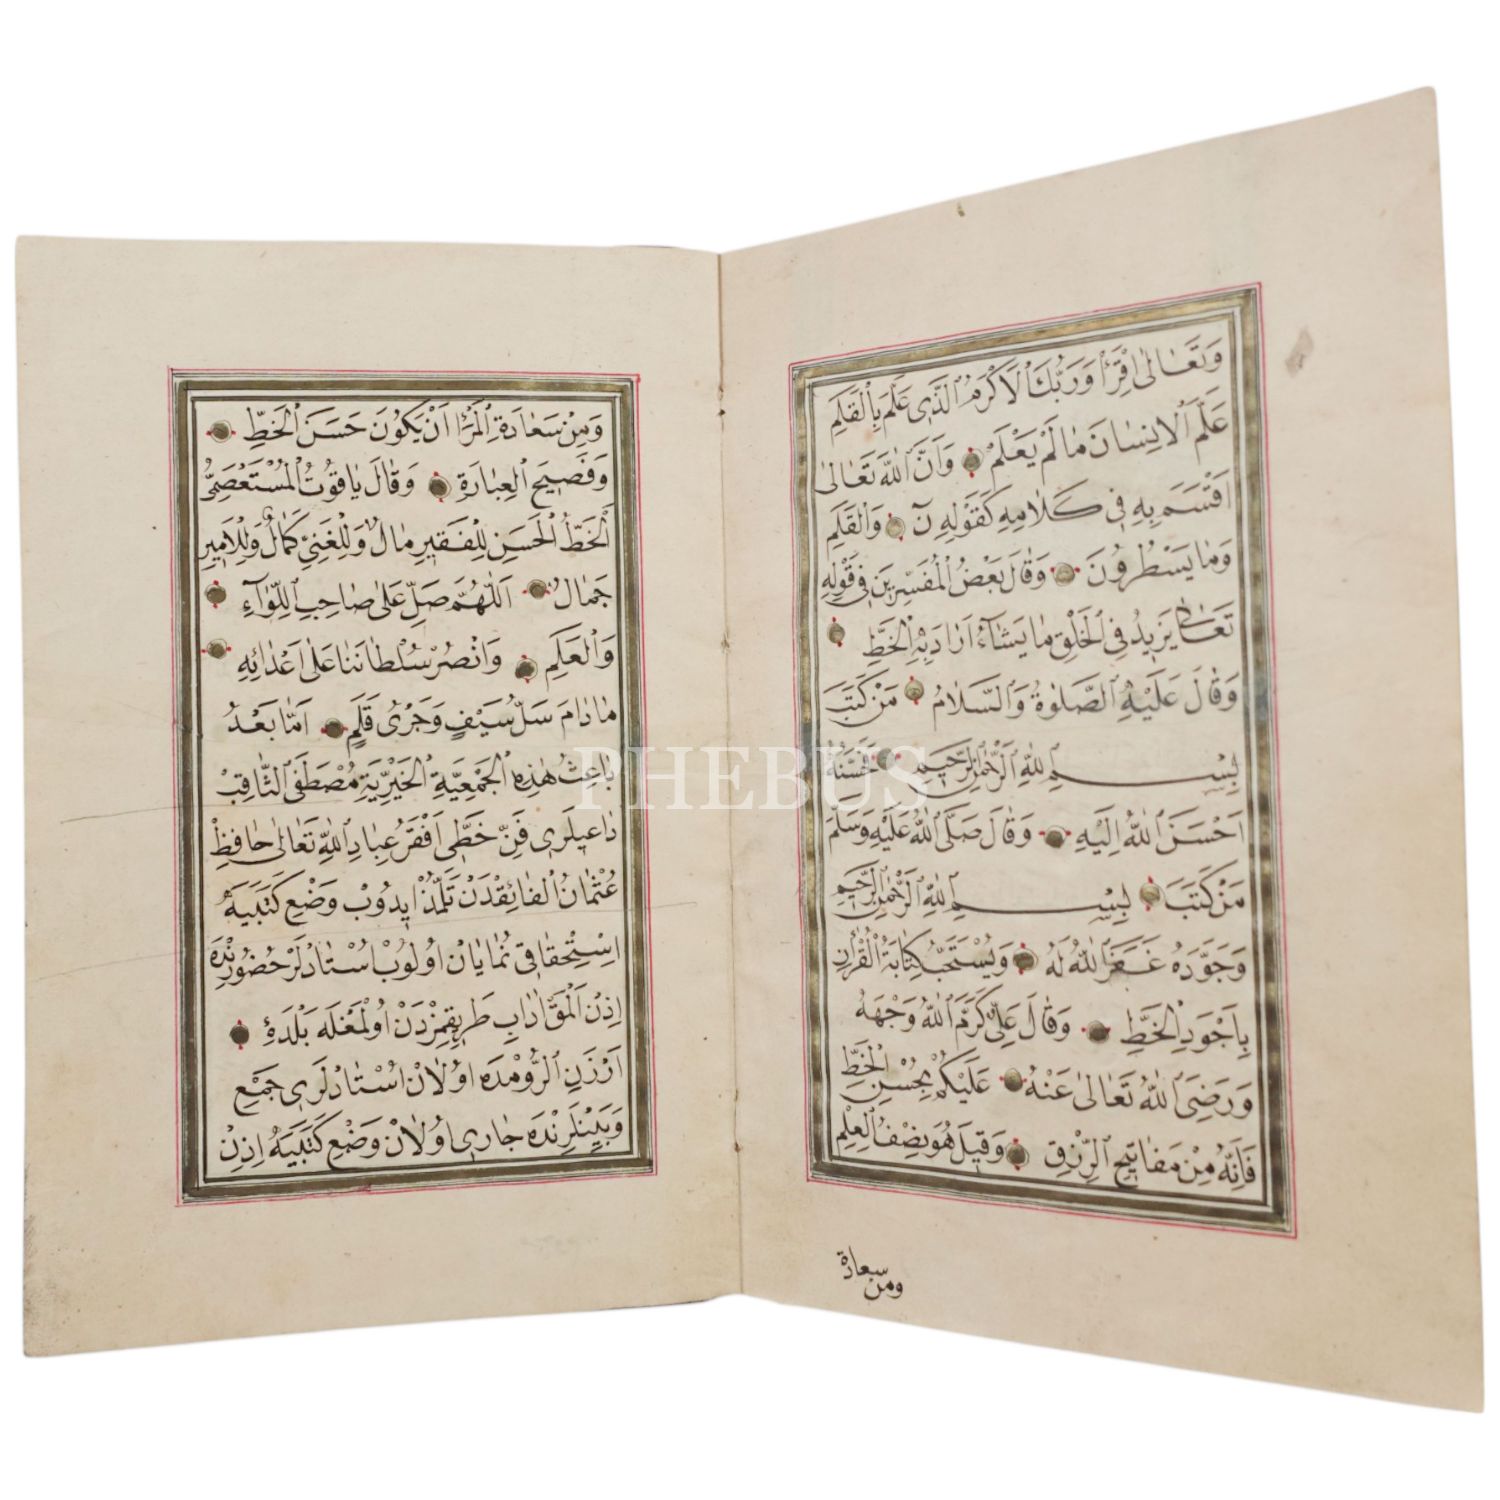 وَتَعَالٰى اِقْرَأْ وَرَبُّكَ الْاَكْرَمُ الَّذِى عَلَّمَ بِالْقَلَمِ
عَلَّمَ الْاِنْسَانَ مَا لَمْ يَعْلَمْ وَاَنَّ اللّٰهَ تَعَالٰى
اَقْسَمَ بِهِ فِى كَلَامِهِ كَقَوْلِهِ نٓ وَالْقَلَمِ
وَمَا يَسْطُرُونَ وَقَالَ بَعْضُ الْمُفَسِّرِينَ فِى قَوْلِهِ
تَعَالٰى يَزِيدُ فِى الْخَلْقِ مَا يَشَآءُ اَرَادَ بِهِ الْخَطَّ
وَقَالَ عَلَيْهِ الصَّلٰوةُ وَالسَّلَامُ مَنْ كَتَبَ
بِسْمِ اللّٰهِ الرَّحْمٰنِ الرَّحِيمِ فَحَسَّنَهُ
اَحْسَنَ اللّٰهُ اِلَيْهِ وَقَالَ صَلَّى اللّٰهُ عَلَيْهِ وَسَلَّمَ
مَنْ كَتَبَ بِسْمِ اللّٰهِ الرَّحْمٰنِ الرَّحِيمِ
وَجَوَّدَهُ غَفَرَ اللّٰهُ لَهُ وَيُسْتَحَبُّ كِتَابَةُ الْقُرْاٰنِ
بِاَجْوَدِ الْخَطِّ وَقَالَ عَلِىٌّ كَرَّمَ اللّٰهُ وَجْهَهُ
وَرَضِىَ اللّٰهُ تَعَالٰى عَنْهُ عَلَيْكُمْ بِحُسْنِ الْخَطِّ
فَاِنَّهُ مِنْ مَفَاتِيحِ الرِّزْقِ وَقِيلَ هُوَ نِصْفُ الْعِلْمِ
ومن سعادة
وَمِنْ سَعَادَةِ الْمَرْأِ اَنْ يَكُونَ حَسَنَ الْخَطِّ
وَفَصِيحَ الْعِبَارَةِ وَقَالَ يَاقُوتُ الْمُسْتَعْصَمِىُّ
اَلْخَطُّ الْحَسَنِ لِلْفَقِيرِ مَالٌ وَلِلْغَنِىِّ كَمَالٌ وَلِلْاَمِيرِ
جَمَالٌ اَللّٰهُمَّ صَلِّ عَلٰى صَاحِبِ اللِّوَآءِ
وَالْعَلَمِ وَانْصُرْ سُلْطَانَنَا عَلٰى اَعْدَائِهِ
مَادَامَ سَلُّ سَيْفٍ وَجَرْىُ قَلَمٍ اَمَّا بَعْدُ
بَاعِثُ هٰذِهِ الْجَمْعِيَّةِ الْخَيْرِيَّةِ مُصْطَفَى الثَّاقِبْ
دَاعِيلَرِى فَنِّ خَطِّى اَفْقَرُ عِبَادِ اللّٰهِ تَعَالٰى حَافِظْ
عُثْمَانُ الْفَائِقْدَنْ تَلَمُّذْ ايدُوبْ وَضْعِ كَتَبَيَهْ
اسْتِحْقَاقِى نُمَايَانْ اوُلُوبْ اسْتَادْلَرْ حُضُورِنْدَه
اِذِنْ اَلْمَقْ اٰدَابِ طَرِيقِمِزْدَنْ اوُلْمَغْلَه بَلْدَۀ
اَرْزَنِ الرُّومْدَه اوُلَانْ اُسْتَادْلَرِى جَمِعْ
وَبَيْنْلَرِنْدَه جَارِى اوُلَانْ وَضْعِ كَتَبَيَهْ اِذِنْ
PHEBUS